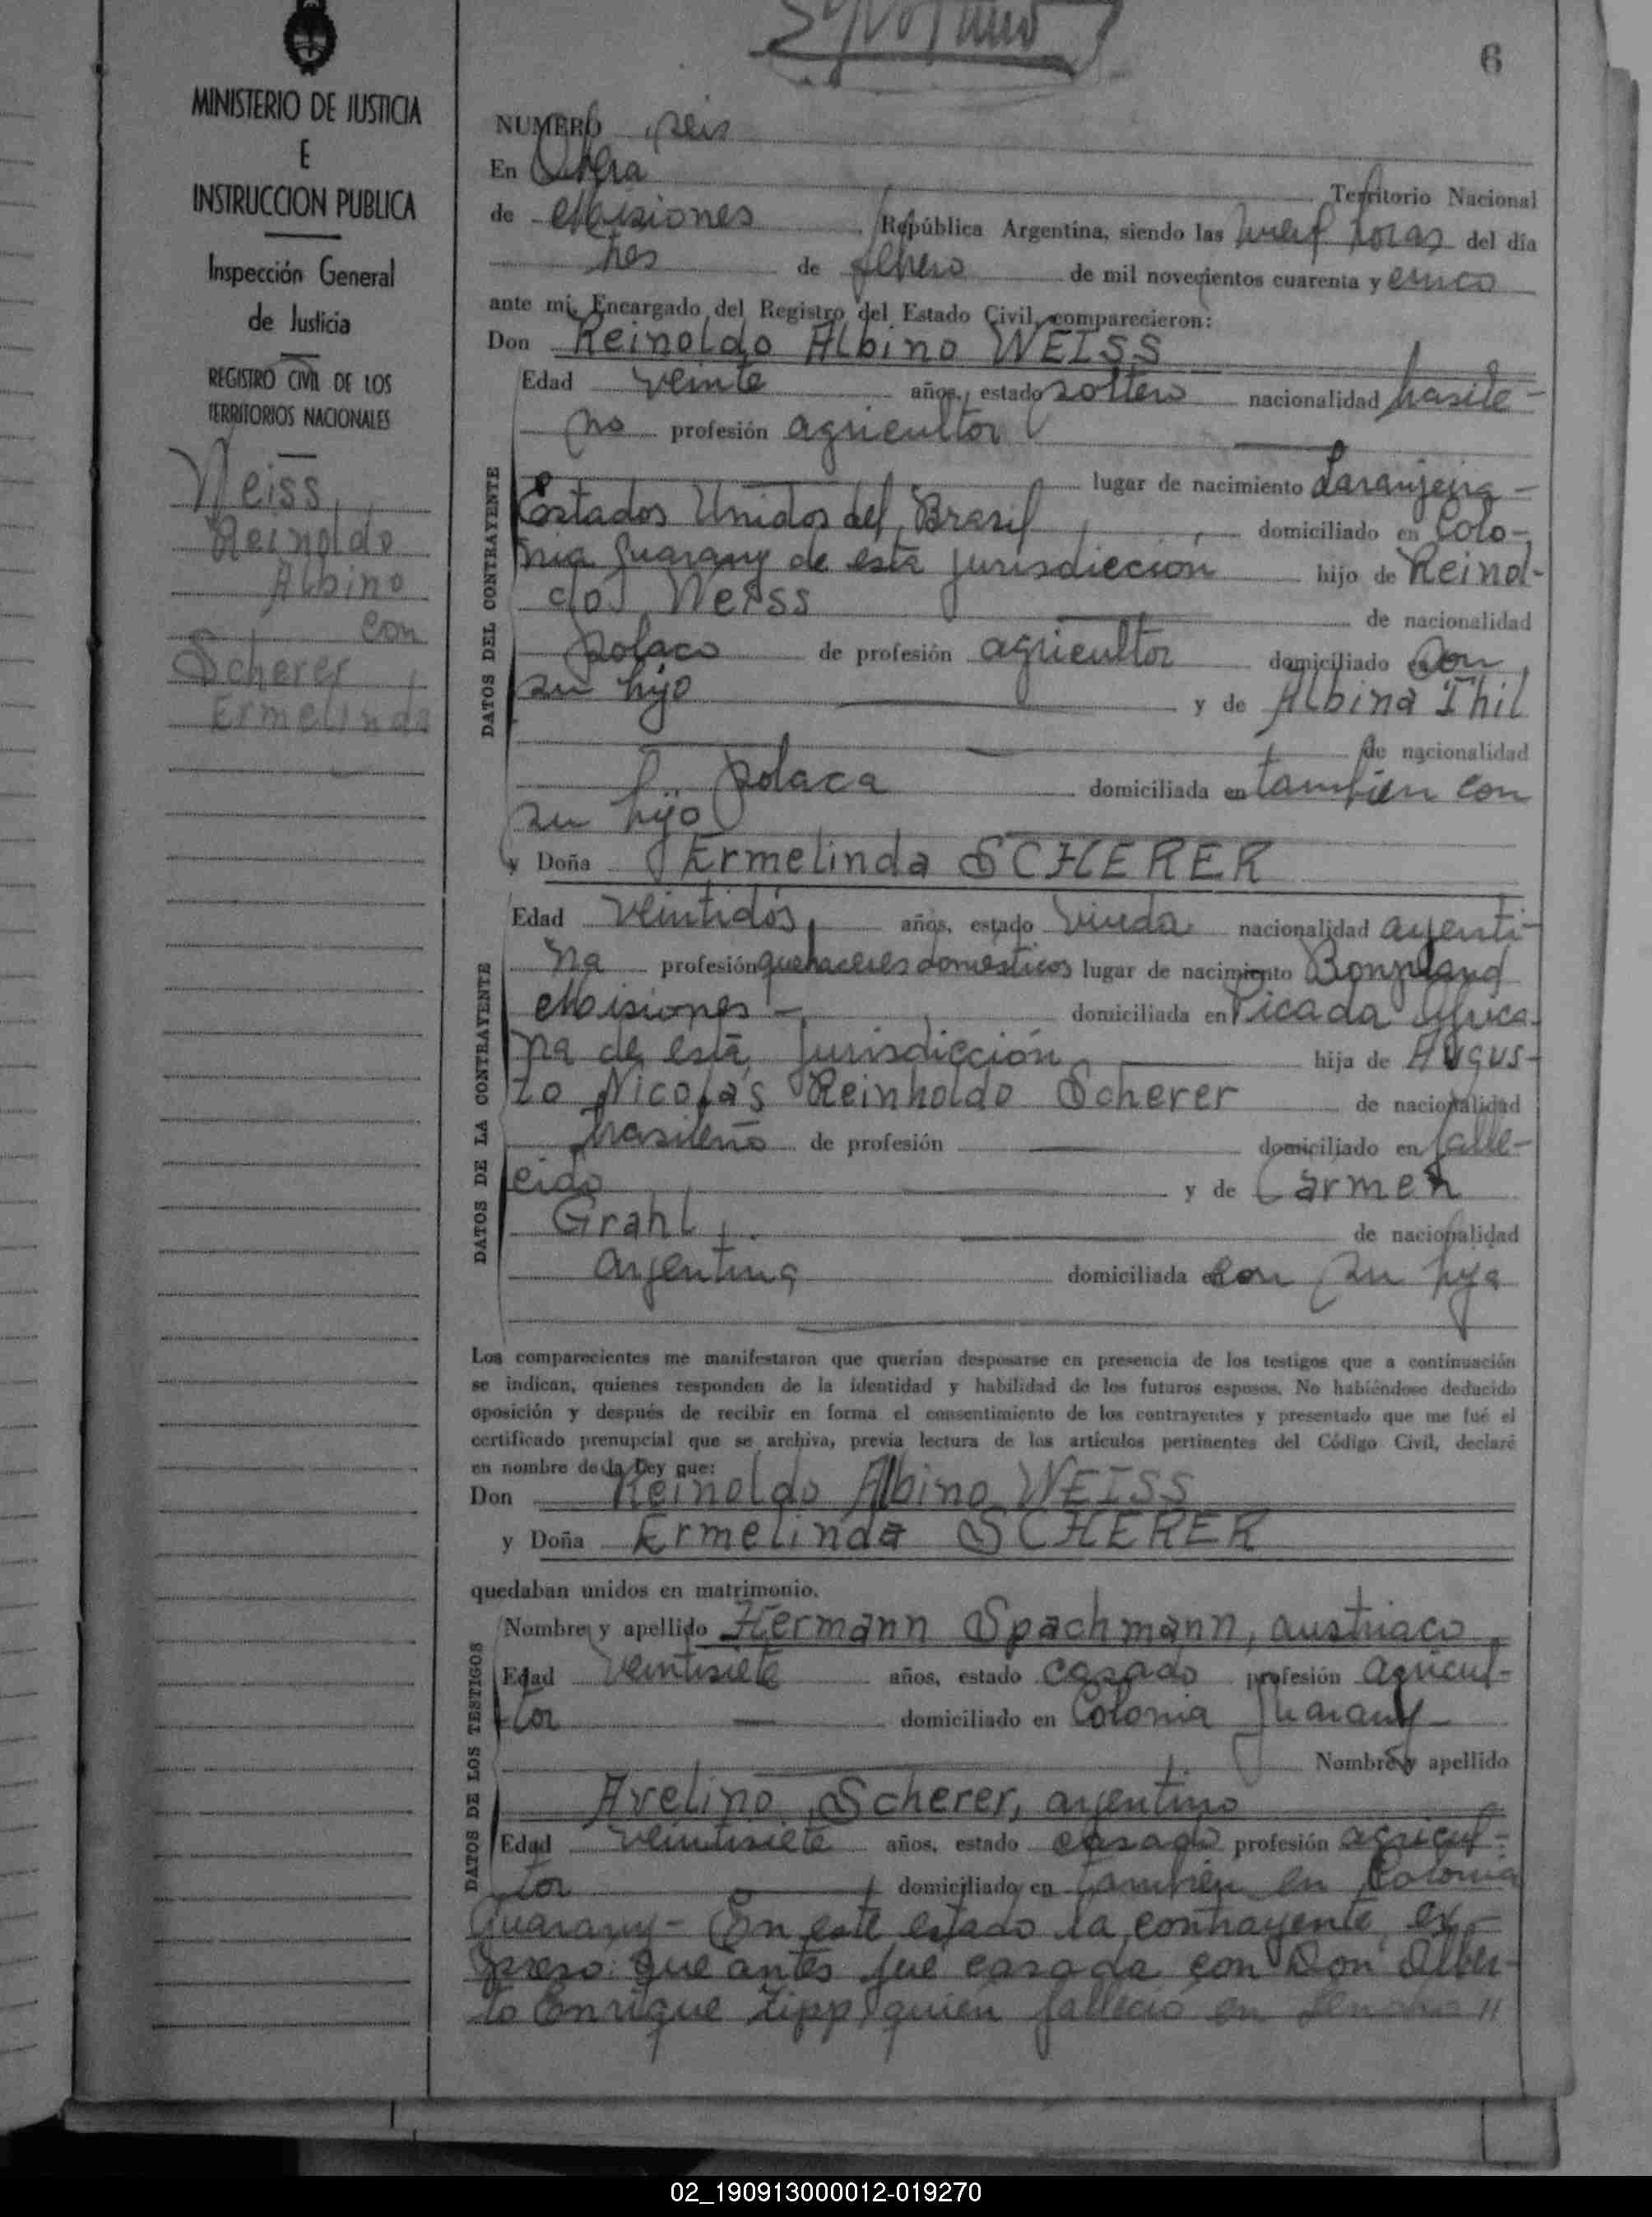 6
MINISTERIO DE JUSTICIA
E
INSTRUCCION PUBLICA
Inspección General
de Justicia
REGISTRO CIVIL DE LOS
TERRITORIOS NACIONALES
Weiss,
Reinoldo
Albino
con
Scherer,
Ermelinda
NUMERO seis
En Oberá Territorio Nacional
de Misiones República Argentina, siendo las nueve horas del día
tres de febrero de mil novecientos cuarenta y cinco
ante mí, Encargado del Registro del Estado Civil, comparecieron:
Don Reinoldo Albino WEISS
DATOS DEL CONTRAYENTE
Edad veinte años, estado soltero nacionalidad brasile-
no profesión agricultor
lugar de nacimiento Laranjeira-
Estados Unidos del Brasil, domiciliado en Colo-
nia Guarany de esta jurisdicción hijo de Reinol-
do Weiss de nacionalidad
polaco de profesión agricultor domiciliado con
su hijo y de Albina Thil
de nacionalidad
polaca domiciliada en también con
su hijo
y Doña Ermelinda SCHERER
DATOS DE LA CONTRAYENTE
Edad veintidós, años, estado viuda nacionalidad argenti-
na profesión quehaceres domésticos lugar de nacimiento Bonpland
Misiones - domiciliada en Picada Africa-
na de esta jurisdicción hija de Augus-
to Nicolás Reinholdo Scherer de nacionalidad
brasileño de profesión domiciliado en falle-
cido y de Carmen
Grahl, de nacionalidad
argentina domiciliada con su hija
Los comparecientes me manifestaron que querían desposarse en presencia de los testigos que a continuación
se indican, quienes responden de la identidad y habilidad de los futuros esposos. No habiéndose deducido
oposición y después de recibir en forma el consentimiento de los contrayentes y presentado que me fué el
certificado prenupcial que se archiva, previa lectura de los artículos pertinentes del Código Civil, declaré
en nombre de la Ley que:
Don Reinoldo Albino WEISS
y Doña Ermelinda SCHERER
quedaban unidos en matrimonio.
DATOS DE LOS TESTIGOS
Nombre y apellido Hermann Spachmann, austriaco
Edad veintisiete años, estado casado profesión agricul-
tor domiciliado en Colonia Guarany-
Nombre y apellido
Avelino Scherer, argentino
Edad veintisiete años, estado casado profesión agricul-
tor domiciliado en también en Colonia
Guarany- En este estado la contrayente ex-
presó: que antes fué casada con Don Alber-
to Enrique Zipp, quién falleció en Leandro "
02_190913000012-019270